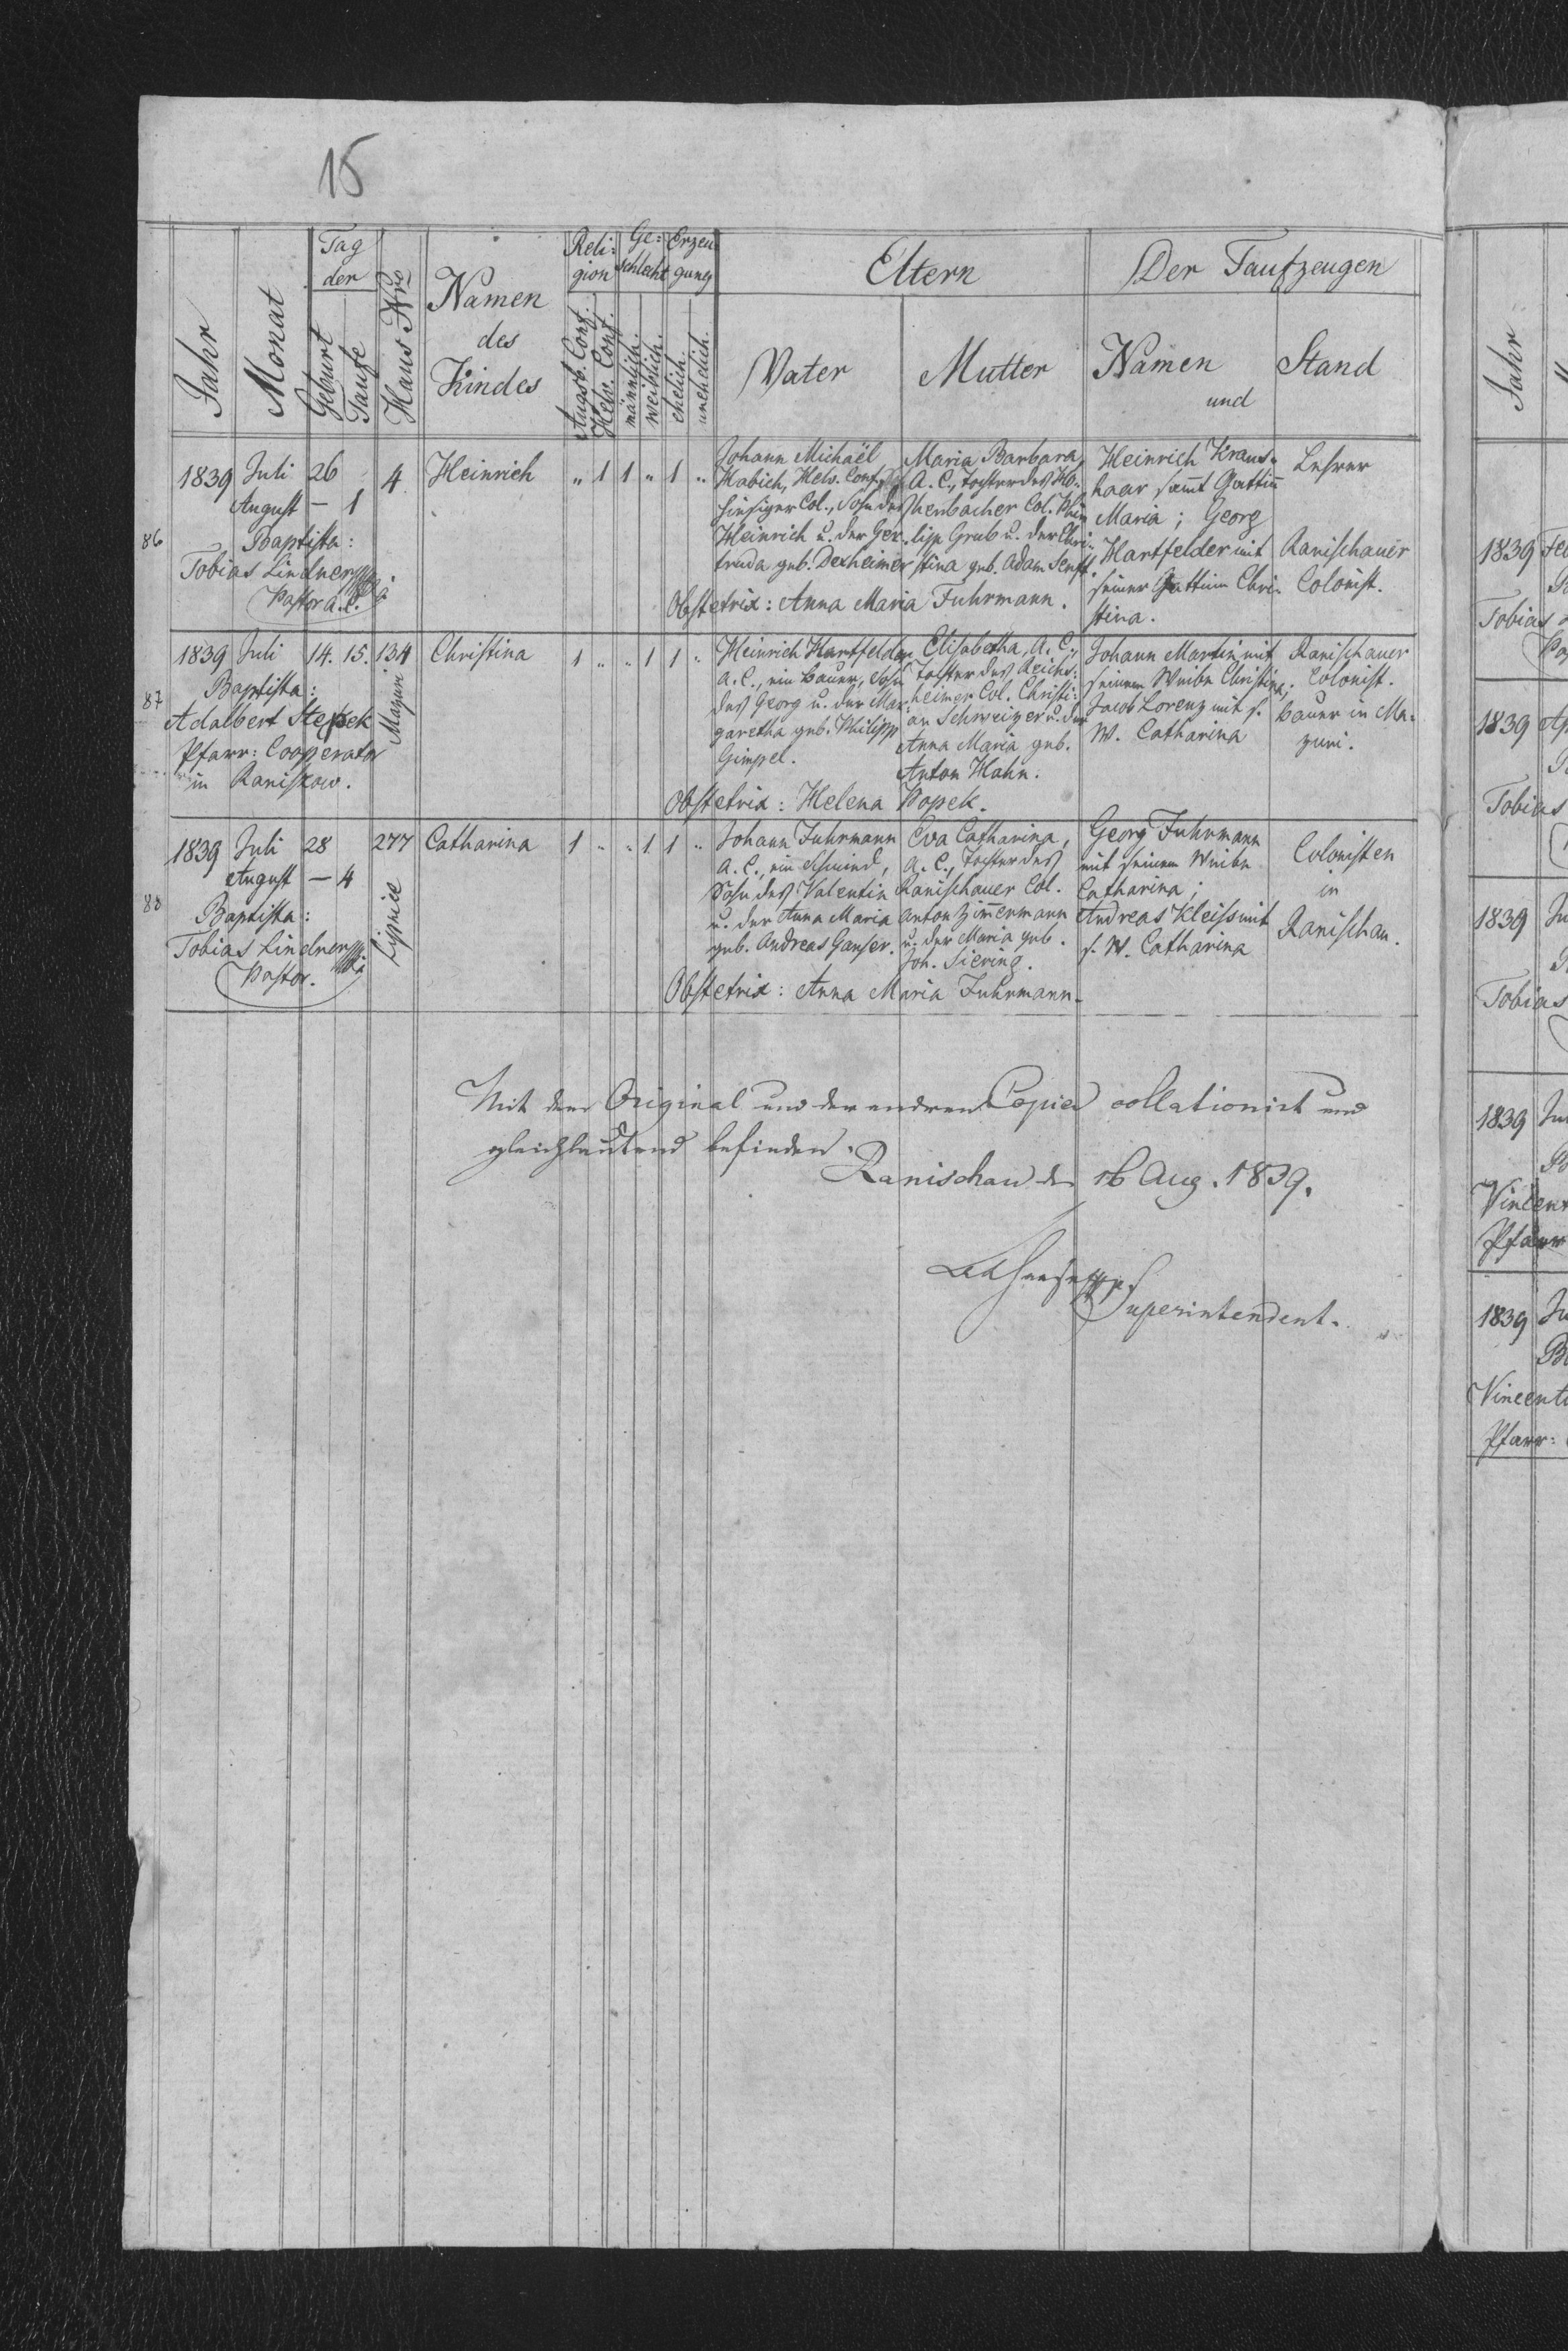 15
Jahr
Monat
Tag der
Geburt
Taufe
Haus Nro
Namen des Kindes
Religion
Augsb. Conf.
Helv. Conf.
Geschlecht
männlich.
weiblich.
Erzeugung
ehelich.
unehelich.
Eltern
Vater
Mutter
Der Taufzeugen
Namen und
Stand
86
1839 Juli 26
August — 1
4
Heinrich
" 1 1 " 1 "
Baptista:
Tobias Lindner
Pastor A. C.
Johann Michaël
Habich, Helv. Conf.,
hiesiger Col., Sohn des
Heinrich u. der Ger-
truda geb. Dexheimer
Maria Barbara,
A. C., Tochter des Ho-
henbacher Col. Phi-
lipp Grub u. der Chri-
stina geb. Adam Senft.
Heinrich Kraus-
haar samt Gattin
Maria; Georg
Hartfelder mit
seiner Gattinn Chri-
stina.
Lehrer
Ranischauer
Colonist.
Obstetrix: Anna Maria Fuhrmann.
87
1839 Juli 14. 15. 134
Mazuri
Christina
1 " " 1 1 "
Baptista:
Adalbert Stepek
Pfarr: Cooperator
in Raniszow.
Heinrich Hartfelder
A. C., ein Bauer, Sohn
des Georg u. der Mar-
garetha geb. Philipp
Gimpel.
Elisabetha, A. C.,
Tochter des Reichs-
heimer Col. Christi-
an Schweizer u. der
Anna Maria geb.
Anton Hahn.
Johann Martin mit
seinem Weibe Christina;
Jacob Lorenz mit s.
W. Catharina
Ranischauer
Colonist.
Bauer in Ma-
zuri.
Obstetrix: Helena Popek.
88
1839 Juli 28
August — 4
277
Lipnice
Catharina
1 " " 1 1 "
Baptista:
Tobias Lindner
Pastor.
Johann Fuhrmann
A. C., ein Schmied,
Sohn des Valentin
u. der Anna Maria
geb. Andreas Ganser.
Eva Catharina,
A. C., Tochter des
Ranischauer Col.
Anton Zimmermann
u. der Maria geb.
Joh. Siering.
Georg Fuhrmann
mit seinem Weibe
Catharina;
Andreas Kleiss mit
s. W. Catharina
Colonisten
in
Ranischau.
Obstetrix: Anna Maria Fuhrmann.
Mit dem Original und der andren Copie collationirt und
gleichlautend befunden.
Ranischau d 16 Aug. 1839.
Superintendent.
Jahr
1839
Tobias
1839
Tobias
1839
Tobias
1839
Vincent
Pfarr
1839
Vincenti
Pfarr: